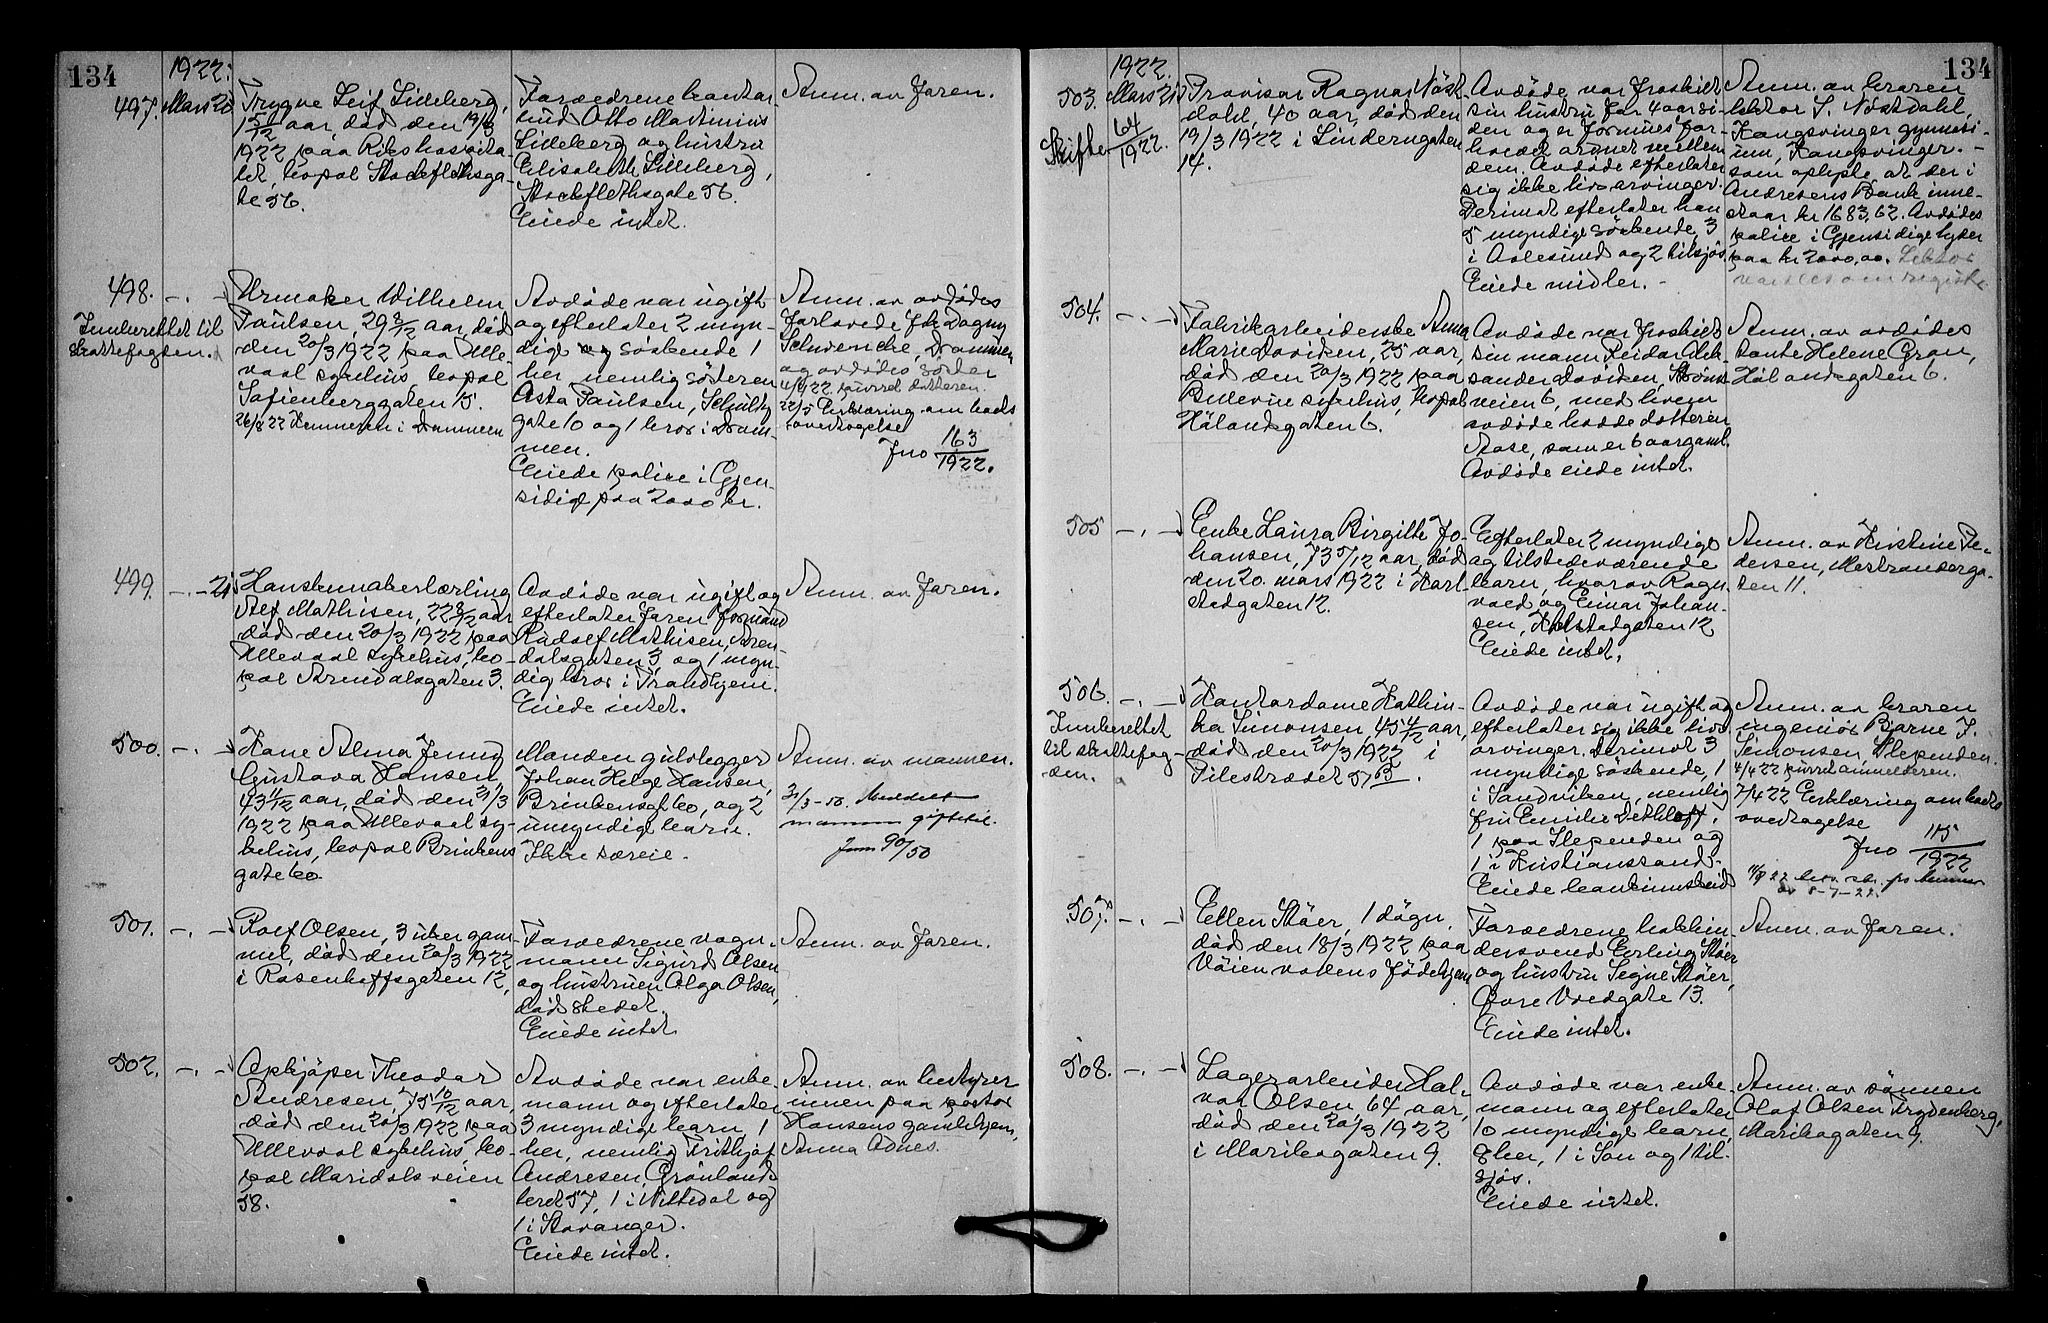 134
1922.
497. Mars 20
Trygve Leif Lideberg,
1 5/12 aar, død den 19/3
1922 paa Rikshospita-
let, bopæl Stockflethsga-
te 56.
Forældrene kontor-
bud Otto Martinius
Lideberg og hustru
Elisabeth Lideberg,
Stockflethsgate 56.
Eiede intet.
Anm. av faren.
498. -.-
Innberettet til
skattefogden.
Urmaker Wilhelm
Paulsen, 29 3/12 aar, død
den 20/3 1922 paa Ulle-
vaal sykehus, bopæl
Sofienberggaten 15.
26/8 22 Kemneren i Drammen
Avdøde var ugift
og efterlater 2 myn-
dige søskende 1
her, nemlig søsteren
Asta Paulsen, Schultz
gate 10 og 1 bror i Dram-
men.
Eiede police i Gjen-
sidige paa 2000 kr.
Anm. av avdødes
forlovede frk Dagny
Schwencke, Drammen
og avdødes søster
4/4 22 purret datteren.
22/5 Erklæring om boets
overtagelse
Jno 163/1922.
499. -.- 21
Hanskemakerlærling
Alf Mathisen, 22 8/12 aar
død den 20/3 1922 paa
Ullevaal sykehus, bo-
pæl Arendalsgaten 3.
Avdøde var ugift og
efterlater faren formand
Rudolf Mathisen, Aren-
dalsgaten 3, og 1 myn-
dig bror i Trondhjem.
Eiede intet.
Anm. av faren.
500. -.-
Kone Alma Jenny
Gustava Hansen,
43 1/12 aar, død den 21/3
1922 paa Ullevaal sy-
kehus, bopæl Brinkens
gate 60
Manden gulvlegger
Johan Helge Hansen,
Brinkensgt 60, og 2
umyndige barn.
Ikke særeie.
Anm. av mannen.
31/3-50. Meddelt
mannen giftetil.
Jnr 90/50
501. -.-
Rolf Olsen, 3 uker gam-
mel, død den 20/3 1922
i Rosenhoffsgaten 12,
Forældrene vogn-
mann Sigurd Olsen
og hustruen Olga Olsen,
dødstedet.
Eiede intet
Anm. av faren.
502. -.-
Opkjøper Theodor
Andresen, 75 10/12 aar,
død den 20/3 1922 paa
Ullevaal sykehus bo-
pæl Maridalsveien
58.
Avdøde var enke-
mann og efterlater
3 myndige barn, 1
her, nemlig Frithjof
Andresen, Grønlands-
leret 57, 1 i Nittedal og
1 i Stavanger.
Eiede intet.
Anm. av bestyrer
innen paa pastor
Hansens gamlehjem,
Anna Adnes.
134
1922.
503. Mars 21
Skifte 64/1922.
Provisor Ragnar Nøst-
dahl, 40 aar, død den
19/3 1922 i Linderngaten
14.
Avdøde var fraskilt
sin hustru for 4 aar si-
den og er formues for-
holdet ordnet mellem
dem. Avdøde efterlater
sig ikke livsarvinger.
Derimot efterlater han
5 myndige søskende, 3
i Aalesund og 2 tilsjøs
Eiede midler.-
Anm. av broren
lektor S. Nøstdahl,
Kongsvinger gymnasi-
um, Kongsvinger. -
som oplyste at der i
Andresens Bank inne-
staar kr 1683,62. Avdødes
police i Gjensidige lyder
paa kr 2000,00. Lektor
varslet om registr.
504. -.-
Fabrikarbeiderske Anna
Marie Davidsen, 25 aar,
død den 20/3 1922 paa
Bellevue sykehus, bopæl
Hølandsgaten 6.
Avdøde var fraskilt
sin mann Reidar Alek-
sander Davidsen, Strøms
veien 6, med hvem
avdøde hadde datteren
Aase, som er 6 aar gaml.
Avdøde eiede intet.
Anm. av avdødes
tante Helene Gran,
Hølandsgaten 6.
505 -.-
Enke Laura Birgitte Jo-
hansen, 73 5/12 aar, død
den 20. mars 1922 i Karl-
stadgaten 12.
Efterlater 2 myndige
og tilstedeværende
barn, hvorav Ragn-
vald og Einar Johan-
sen, Karlstadgaten 12
Eiede intet.
Anm. av Kristine Pe-
dersen, Østrandsga-
ten 11.
506. -.-
Innberettet
til skattefog-
den.
Kontordame Kathin-
ka Simonsen, 45 4/12 aar,
død den 20/3 1922 i
Pilestrædet 57 B.
Avdøde var ugift og
efterlater sig ikke livs-
arvinger. Derimot 3
myndige søskende, 1
i Sandviken, nemlig
fru Emilie Dethloff,
1 paa Slependen og
1 i Kristianssand.
Eiede bankinnskud
Anm. av broren
ingeniør Bjarne J.
Simonsen, Slependen.
4/4 22 purret anmelderen.
7/4 22 Erklæring om boets
overtagelse
Jno 115/1922
av 8-7-22.
507. -.-
Ellen Støer, 1 døgn,
død den 18/3 1922 paa
Vøienvollens fødehjem
Forældrene
Erling Støer
og hustru Signe Støer,
Øvre Voldgate 13.
Eiede intet.
Anm. av faren.
508. -.-
Lagerarbeider Hal-
vor Olsen, 64 aar,
død den 20/3 1922
i Maribogaten 9.
Avdøde var enke-
mann og efterlater
10 myndige barn,
8 her, 1 i Son og 1 til-
sjøs.
Eiede intet.
Anm. av sønnen
Olaf Olsen Frydenberg,
Maribogaten 9.